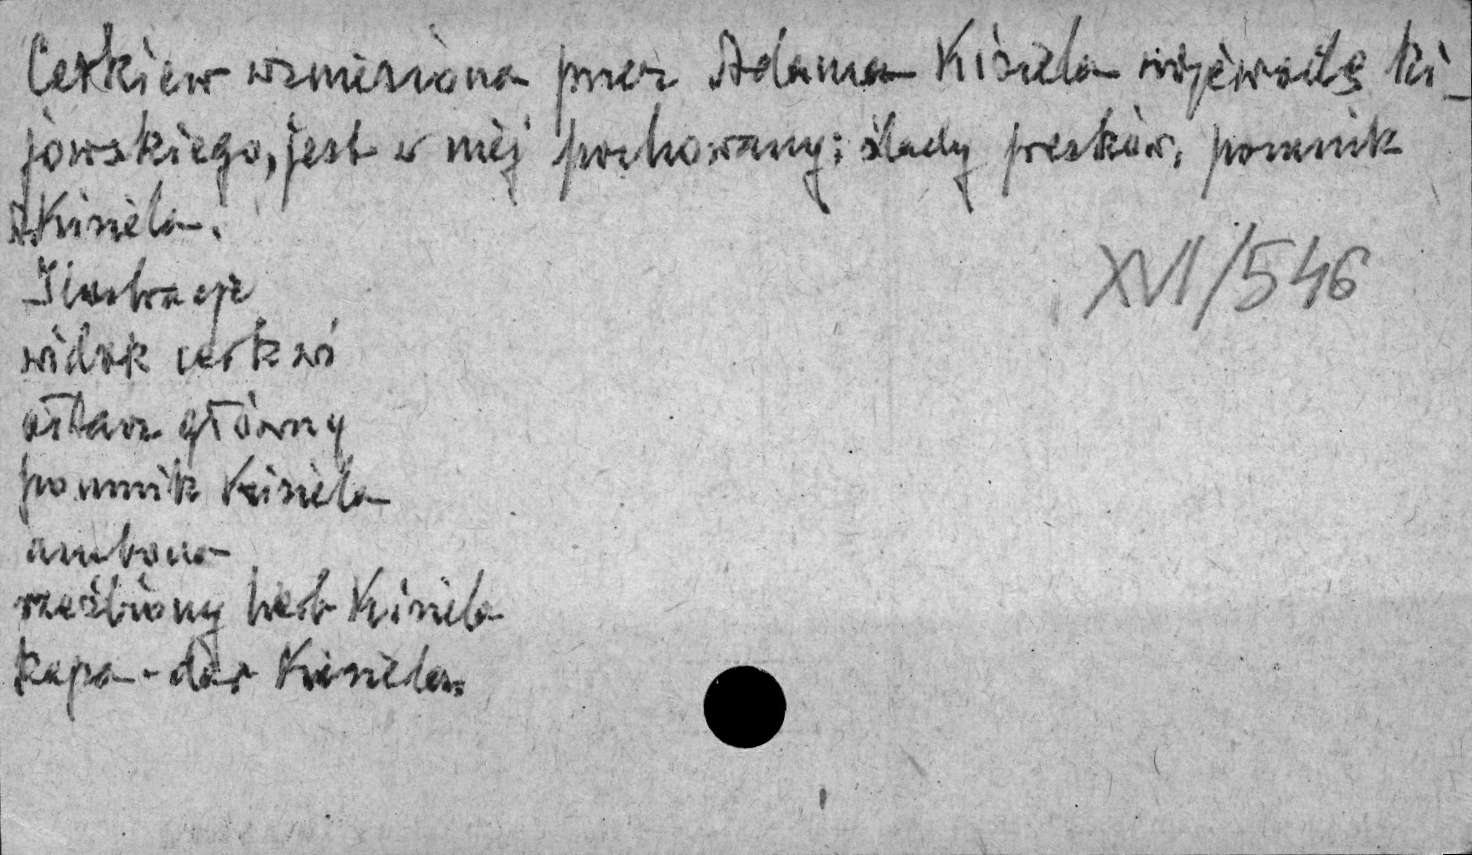 Cerkiew wzniesiona przez Adama Kisiela wojewodę ki-
jowskiego, jest w niej pochowany; ślady fresków, pomnik
A. Kisiela.
Ilustracje
widok cerkwi
ołtarz główny
pomnik Kisiela
ambona
rzeźbiony herb Kisiela
kapa - dar Kisiela.
XVI/546